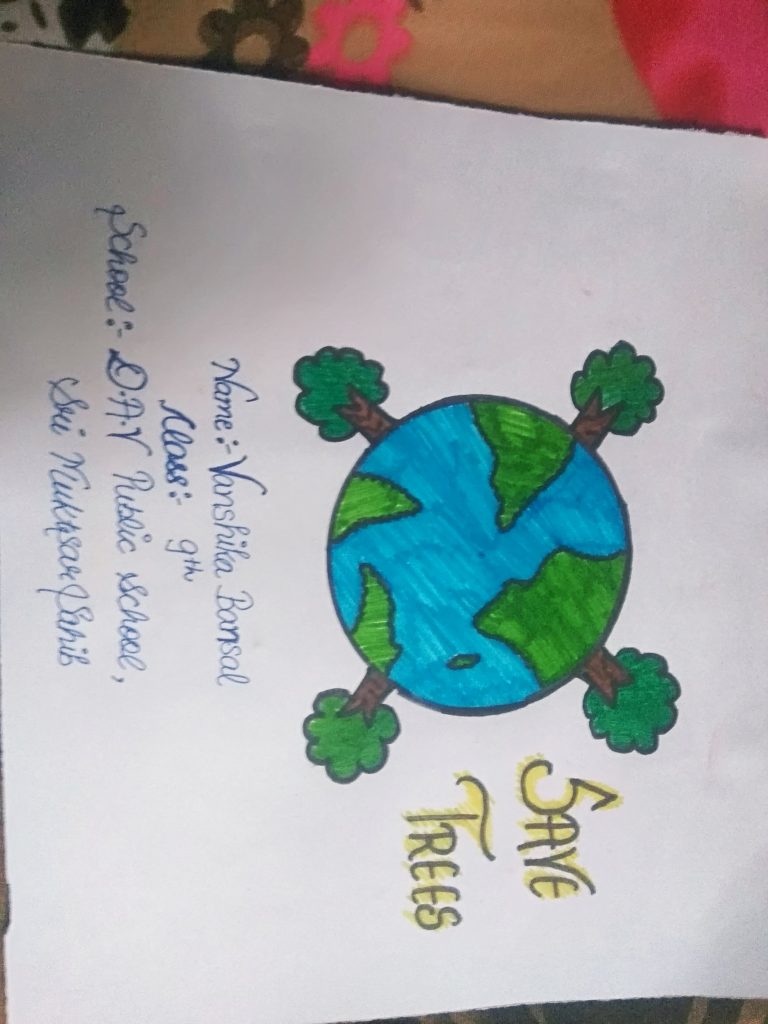 SAVE
TREES
Name:- Vanshika Bansal
Class:- 9th
School:- D.A.V Public School,
Sri Muktsar Sahib